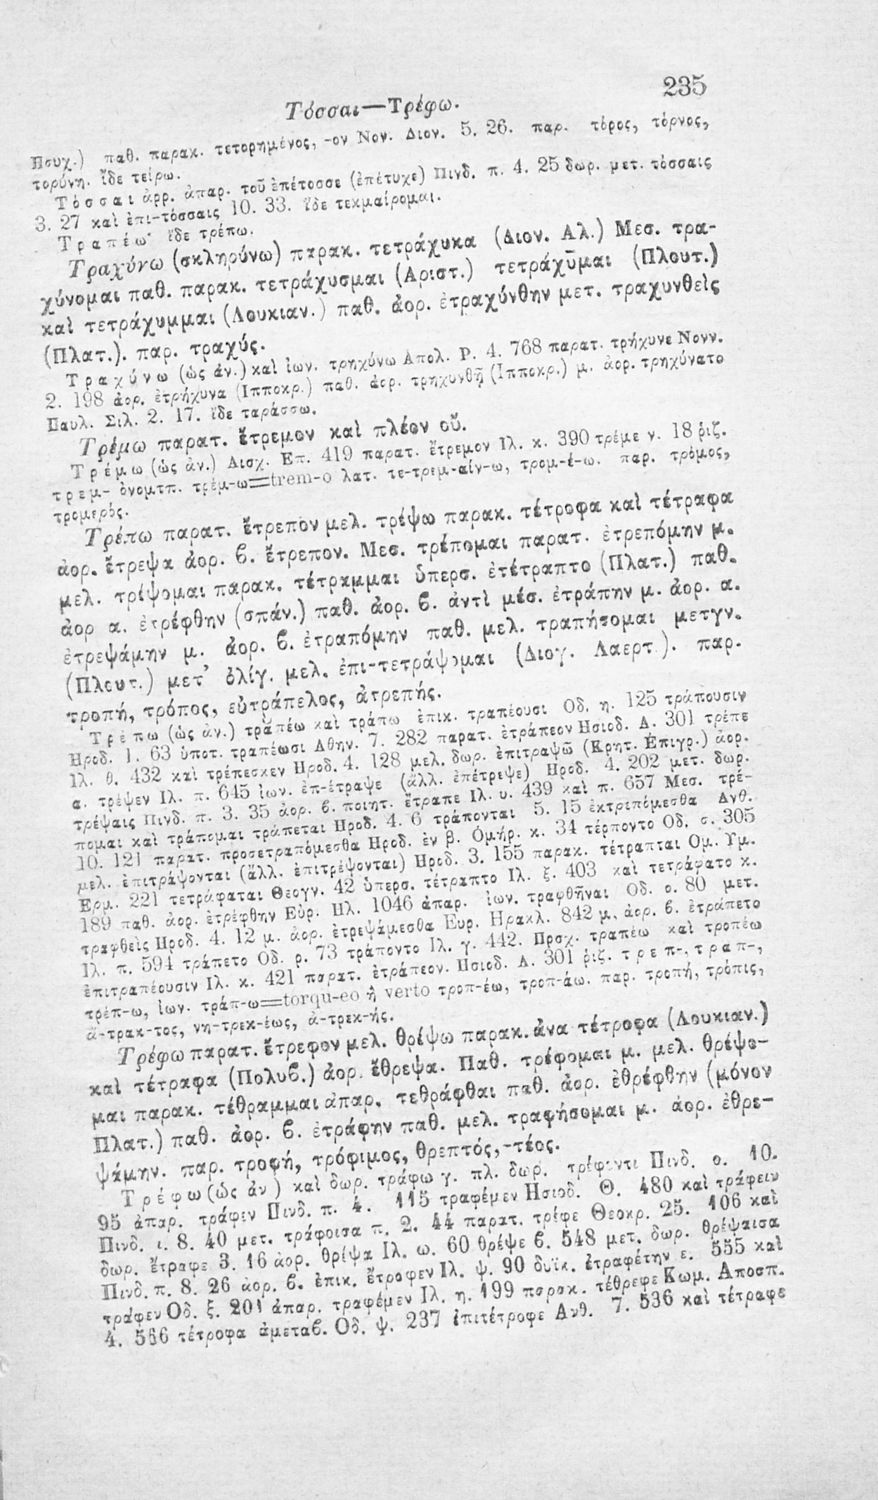 235
Τόσσαι—Τρέφω.
Ησυχ.) παθ. παρακ. τετορημένος, -ον Νον. Διον. 5. 26. παρ. τόρος, τόρνος,
τορύνη. ἴδε τείρω.
Τόσσαι ἀρρ. ἀπαρ. τοῦ ἐπέτοσσε (ἐπέτυχε) Πινδ. π. 4. 25 δωρ. μετ. τόσσαις
3. 27 καὶ ἐπι-τόσσαις 10. 33. ἴδε τεκμαίρομαι.
Τραπέω· ἴδε τρέπω.
Τραχύνω (σκληρύνω) παρακ. τετράχυκα (Διον. Αλ.) Μεσ. τρα-
χύνομαι παθ. παρακ. τετράχυσμαι (Αριστ.) τετράχῦμαι (Πλουτ.)
καὶ τετράχυμμαι (Λουκιαν.) παθ. ἀορ. ἐτραχύνθην μετ. τραχυνθεὶς
(Πλατ.). παρ. τραχύς.
Τραχύνω (ὡς ἀν.) καὶ ἰων. τρηχύνω Απολ. Ρ. 4. 768 παρατ. τρήχυνε Νονν.
2. 198 ἀορ. ἐτρήχυνα (Ιπποκρ.) παθ. ἀορ. τρηχυνθῇ (Ιπποκρ.) μ. ἀορ. τρηχύνατο
Παυλ. Σιλ. 2. 17. ἴδε ταράσσω.
Τρέμω παρατ. ἔτρεμον καὶ πλέον οὔ.
Τρέμω (ὡς ἀν.) Αισχ. Επ. 419 παρατ. ἔτρεμον Ιλ. κ. 390 τρέμε ν. 18 ῥιζ.
τρεμ- ὀνομτπ. τρέμ-ω=trem-o λατ. τε-τρεμ-αίν-ω, τρομ-έ-ω. παρ. τρόμος,
τρομερός.
Τρέπω παρατ. ἔτρεπον μελ. τρέψω παρακ. τέτροφα καὶ τέτραφα
ἀορ. ἔτρεψα ἀορ. β. ἔτρεπον. Μεσ. τρέπομαι παρατ. ἐτρεπόμην μ.
μελ. τρέψομαι παρακ. τέτραμμαι ὑπερσ. ἐτέτραπτο (Πλατ.) παθ.
ἀορ α. ἐτρέφθην (σπάν.) παθ. ἀορ. β. ἀντὶ μέσ. ἐτράπην μ. ἀορ. α.
ἐτρεψάμην μ. ἀορ. β. ἐτραπόμην παθ. μελ. τραπήσομαι μετγν.
(Πλουτ.) μετ' ὀλίγ. μελ. ἐπι-τετράψομαι (Διογ. Λαερτ.). παρ.
τροπή, τρόπος, εὐτράπελος, ἀτρεπής.
Τρέπω (ὡς ἀν.) τραπέω καὶ τράπω ἐπικ. τραπέουσι Οδ. η. 125 τράπουσιν
Ηροδ. 1. 63 ὑποτ. τραπέωσι Αθην. 7. 282 παρατ. ἐτράπεον Ησιοδ. Α. 301 τρέπε
Ιλ. θ. 432 καὶ τρέπεσκεν Ηροδ. 4. 128 μελ. δωρ. ἐπιτραψῶ (Κρητ. Επιγρ.) ἀορ.
α. τρέψεν Ιλ. π. 645 ἰων. ἐπ-έτραψε (ἄλλ. ἐπέτρεψε) Ηροδ. 4. 202 μετ. δωρ.
τρέψαις Πινδ. π. 3. 35 ἀορ. β. ποιητ. ἔτραπε Ιλ. υ. 439 καὶ π. 657 Μεσ. τρέ-
πομαι καὶ τράπομαι τράπεται Ηροδ. 4. 6 τράπονται 5. 15 ἐκτρεπόμεσθα Ανθ.
10. 121 παρατ. προσετραπόμεσθα Ηροδ. ἐν β. Ομήρ. κ. 34 τέρποντο Οδ. σ. 305
μελ. ἐπιτράψονται (ἄλλ. ἐπιτρέψονται) Ηροδ. 3. 155 παρακ. τέτραπται Ομ. Υμ.
Ερμ. 221 τετράφαται Θεογν. 42 ὑπερσ. τέτραπτο Ιλ. ξ. 403 καὶ τετράφατο κ.
189 παθ. ἀορ. ἐτρέφθην Εὐρ. Ηλ. 1046 ἀπαρ. ἰων. τραφθῆναι Οδ. ο. 80 μετ.
τραφθεὶς Ηροδ. 4. 12 μ. ἀορ. ἐτρεψάμεσθα Ευρ. Ηρακλ. 842 μ. ἀορ. β. ἐτράπετο
Ιλ. π. 594 τράπετο Οδ. ρ. 73 τράποντο Ιλ. γ. 442. Προχ. τραπέω καὶ τροπέω
ἐπιτραπέουσιν Ιλ. κ. 421 παρατ. ἐτράπεον. Ησιοδ. Α. 301 ῥιζ. τρεπ-, τραπ-,
τρέπ-ω, ἰων. τράπ-ω=torqu-eo ἢ verto τροπ-έω, τροπ-άω. παρ. τροπή, τρόπις,
ἄ-τρακ-τος, νη-τρεκ-έως, ἀ-τρεκ-ής.
Τρέφω παρατ. ἔτρεφον μελ. θρέψω παρακ. ἀνα τέτροφα (Λουκιαν.)
καὶ τέτραφα (Πολυβ.) ἀορ. ἔθρεψα. Παθ. τρέφομαι μ. μελ. θρέψο-
μαι παρακ. τέθραμμαι ἀπαρ. τεθράφθαι παθ. ἀορ. ἐθρέφθην (μόνον
Πλατ.) παθ. ἀορ. β. ἐτράφην παθ. μελ. τραφήσομαι μ. ἀορ. ἐθρε-
ψάμην. παρ. τροφή, τρόφιμος, θρεπτός, -τέος.
Τρέφω (ὡς ἀν) καὶ δωρ. τράφω γ. πλ. δωρ. τρέφοντι Πινδ. ο. 10.
95 ἀπαρ. τράφεν Πινδ. π. 4. 115 τραφέμεν Ησιοδ. Θ. 480 καὶ τράφειν
Πινδ. ι. 8. 40 μετ. τράφοισα π. 2. 44 παρατ. τρέφε Θεοκρ. 25. 106 καὶ
δωρ. ἔτραφε 3. 16 ἀορ. θρέψα Ιλ. ω. 60 θρέψε β. 548 μετ. δωρ. θρέψαισα
Πινδ. π. 8. 26 ἀορ. β. ἐπικ. ἔτραφεν Ιλ. ψ. 90 δυϊκ. ἐτραφέτην ε. 555 καὶ
τράφεν Οδ. ξ. 201 ἀπαρ. τραφέμεν Ιλ. η. 199 παρακ. τέθρεφε Κωμ. Αποσπ.
4. 566 τέτροφα ἀμεταβ. Οδ. ψ. 237 ἐπιτέτροφε Ανθ. 7. 536 καὶ τέτραφε